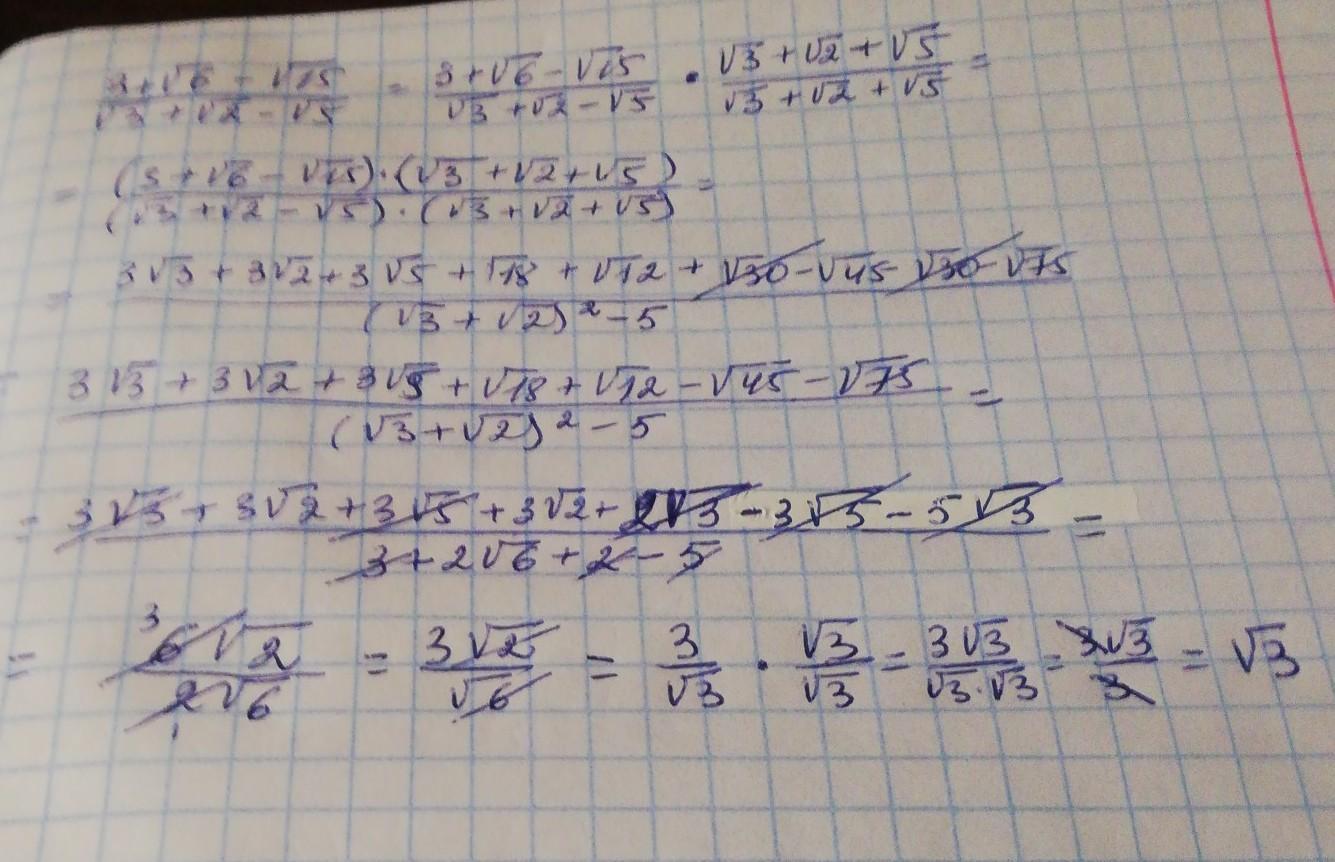 (3+√6-√15)/(√3+√2-√5) = (3+√6-√15)/(√3+√2-√5) · (√3+√2+√5)/(√3+√2+√5) =
= ((3+√6-√15)·(√3+√2+√5))/((√3+√2-√5)·(√3+√2+√5)) =
= (3√3+3√2+3√5+√18+√12+√30-√45-√30-√75)/((√3+√2)²-5)
= (3√3+3√2+3√5+√18+√12-√45-√75)/((√3+√2)²-5) =
= (3√3+3√2+3√5+3√2+2√3-3√5-5√3)/(3+2√6+2-5) =
= (6√2)/(2√6) = (3√2)/(√6) = 3/√3 · √3/√3 = (3√3)/(√3·√3) = (3√3)/3 = √3